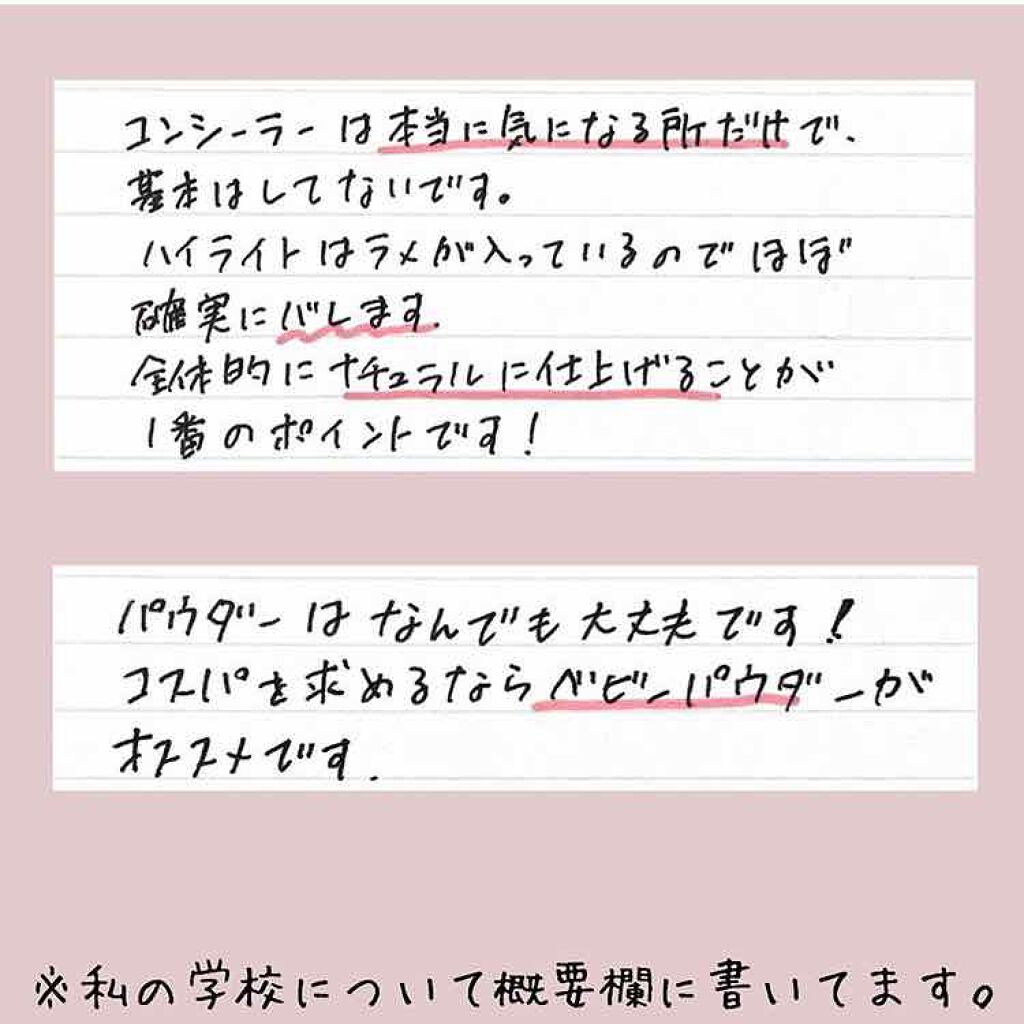 コンシーラーは本当に気になる所だけで、
基本はしてないです。
ハイライトはラメが入っているのでほぼ
確実にバレます.
全体的にナチュラルに仕上げることが
1番のポイントです!
パウダーはなんでも大丈夫です!
コスパを求めるならベビーパウダーが
オススメです.
※私の学校について概要欄に書いてます。